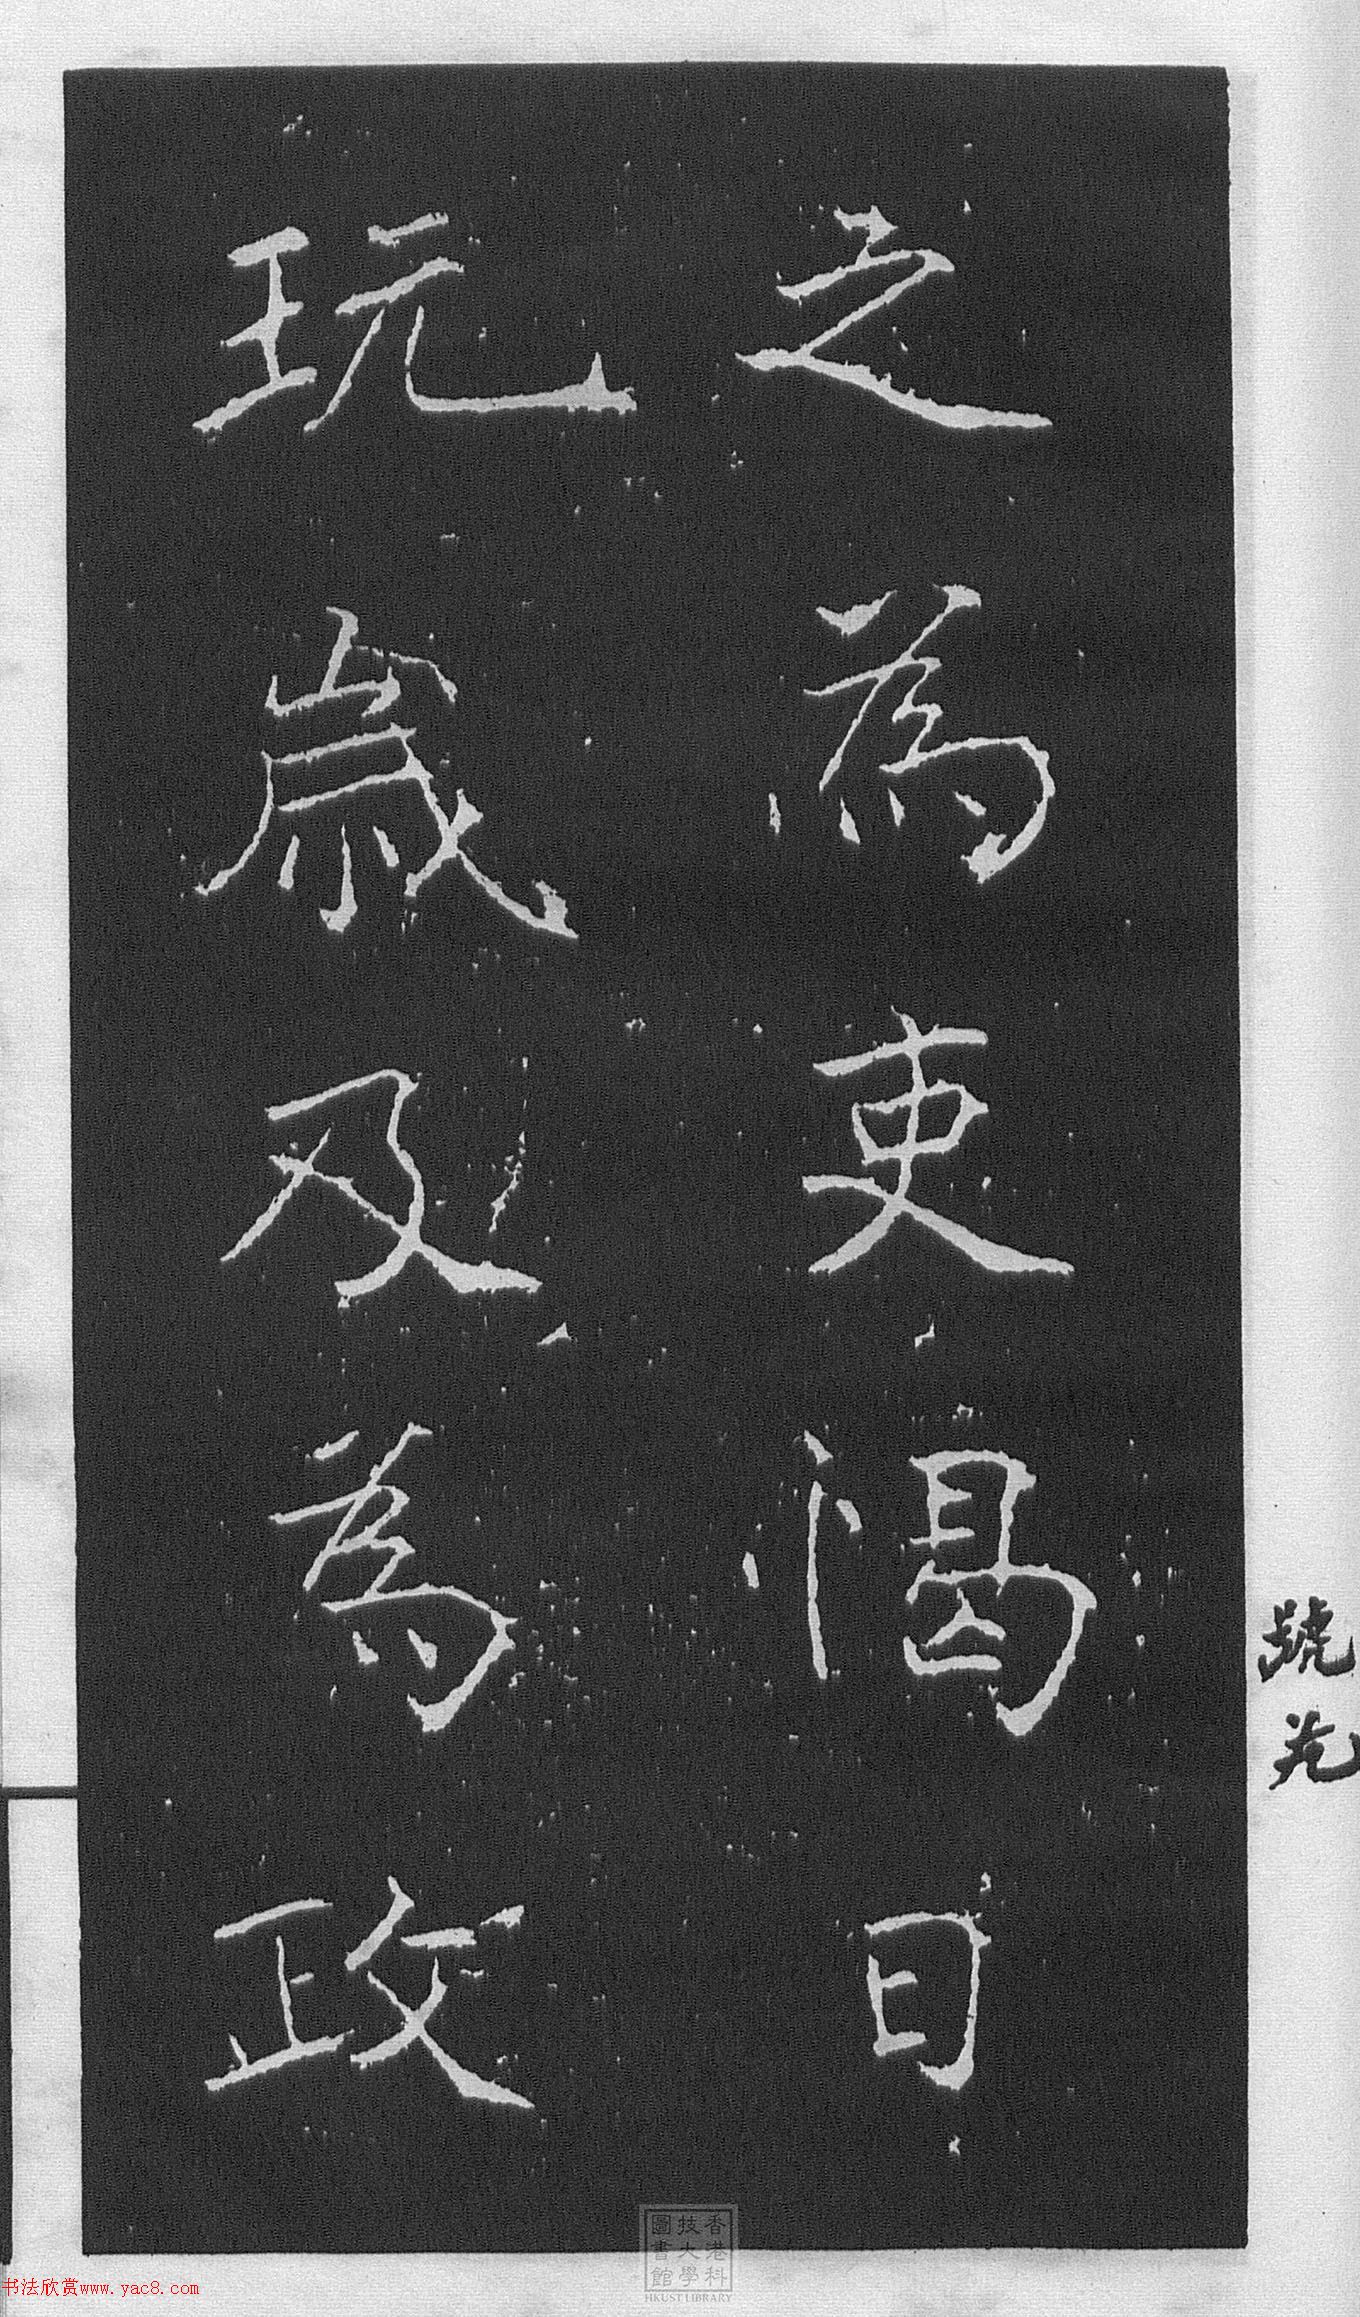 之為吏愒日
玩歲及為政
香港科
技大學
圖書館
HKUST LIBRARY
书法欣赏www.yac8.com